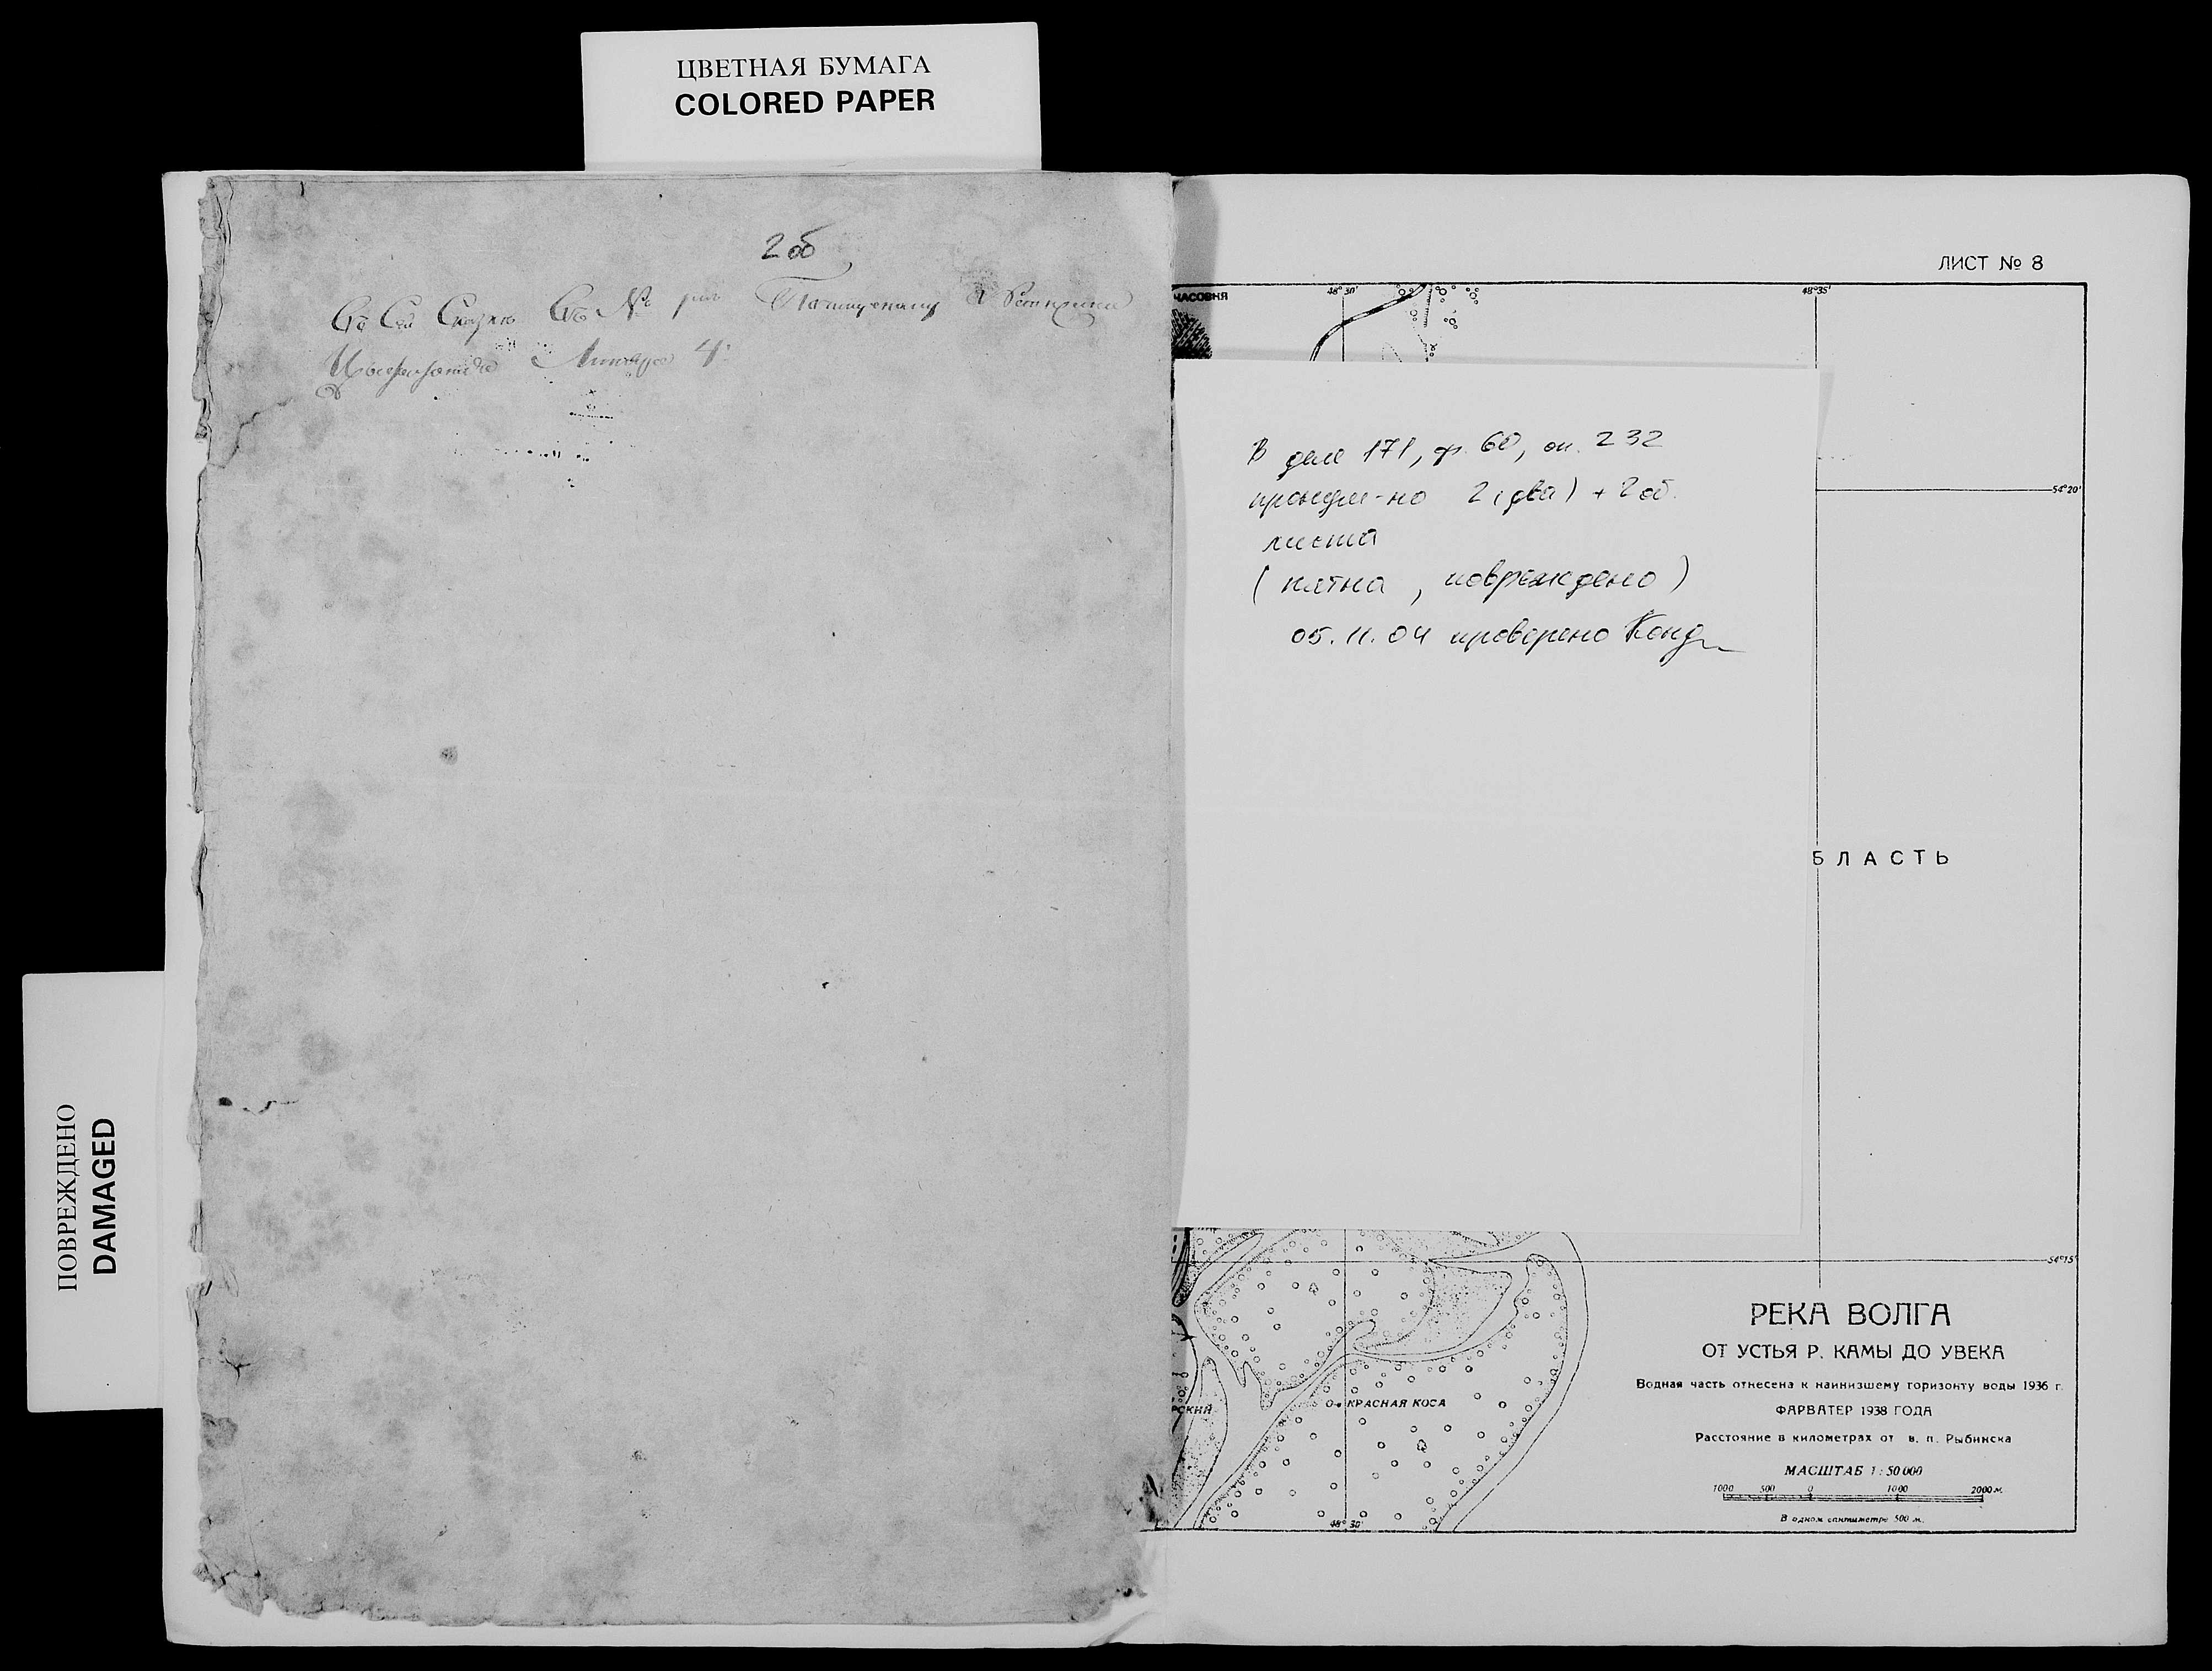 ЦВЕТНАЯ БУМАГА
COLORED PAPER
ПОВРЕЖДЕНО
DAMAGED
2 об
Съ Сей
4
В деле 171, ф. 60, оп. 232
пронум-но 2 (два) + 2 об.
листа
( пятна , повреждено )
05. 11. 04 проверено
ЛИСТ № 8
ЧАСОВНЯ
48° 30'
48° 35'
54° 20'
БЛАСТЬ
54° 15'
РСКИЙ
О-в КРАСНАЯ КОСА
48° 30'
РЕКА ВОЛГА
ОТ УСТЬЯ Р. КАМЫ ДО УВЕКА
Водная часть отнесена к наинизшему горизонту воды 1936 г.
ФАРВАТЕР 1938 ГОДА
Расстояние в километрах от в. п. Рыбинска
МАСШТАБ 1 : 50 000
1000 500 0 1000 2000 м.
В одном сантиметре 500 м.